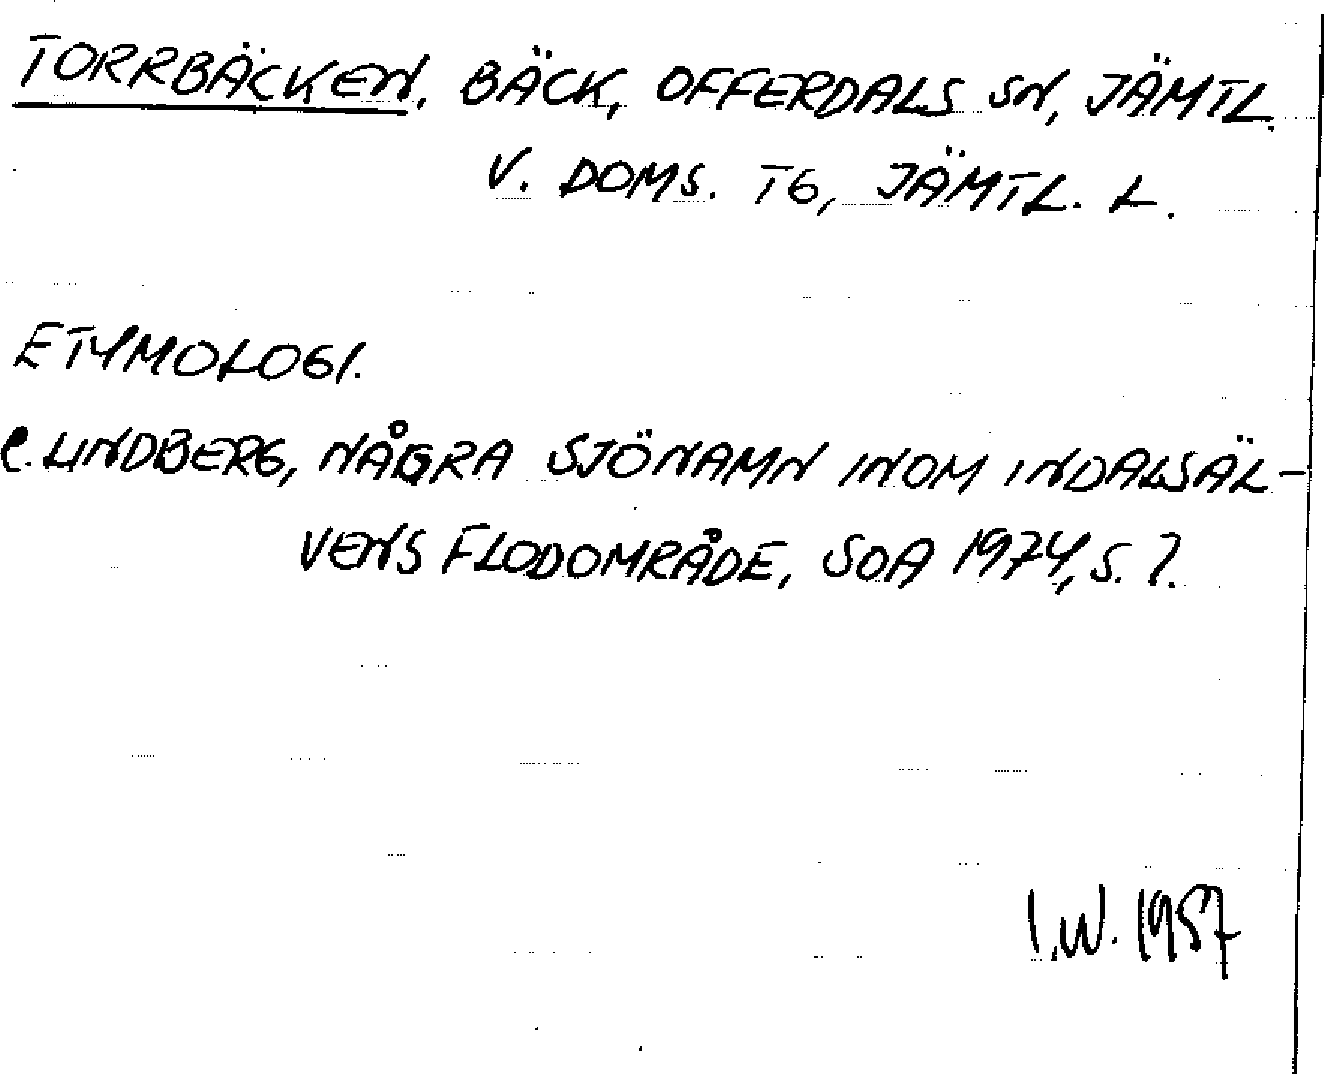 TORRBÄCKEN, BÄCK, OFFERDALS SN, JÄMTL.
V. DOMS. TG, JÄMTL. L.
ETYMOLOGI.
C. LINDBERG, NÅGRA SJÖNAMN INOM INDALSÄL-
VENS FLODOMRÅDE, SOA 1974, S. 7.
I.W. 1987